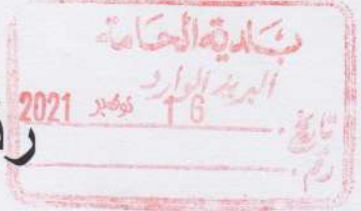 بلدية الحامة
البريد الوارد
تاريخ : 16 نوفمبر 2021
رقم :